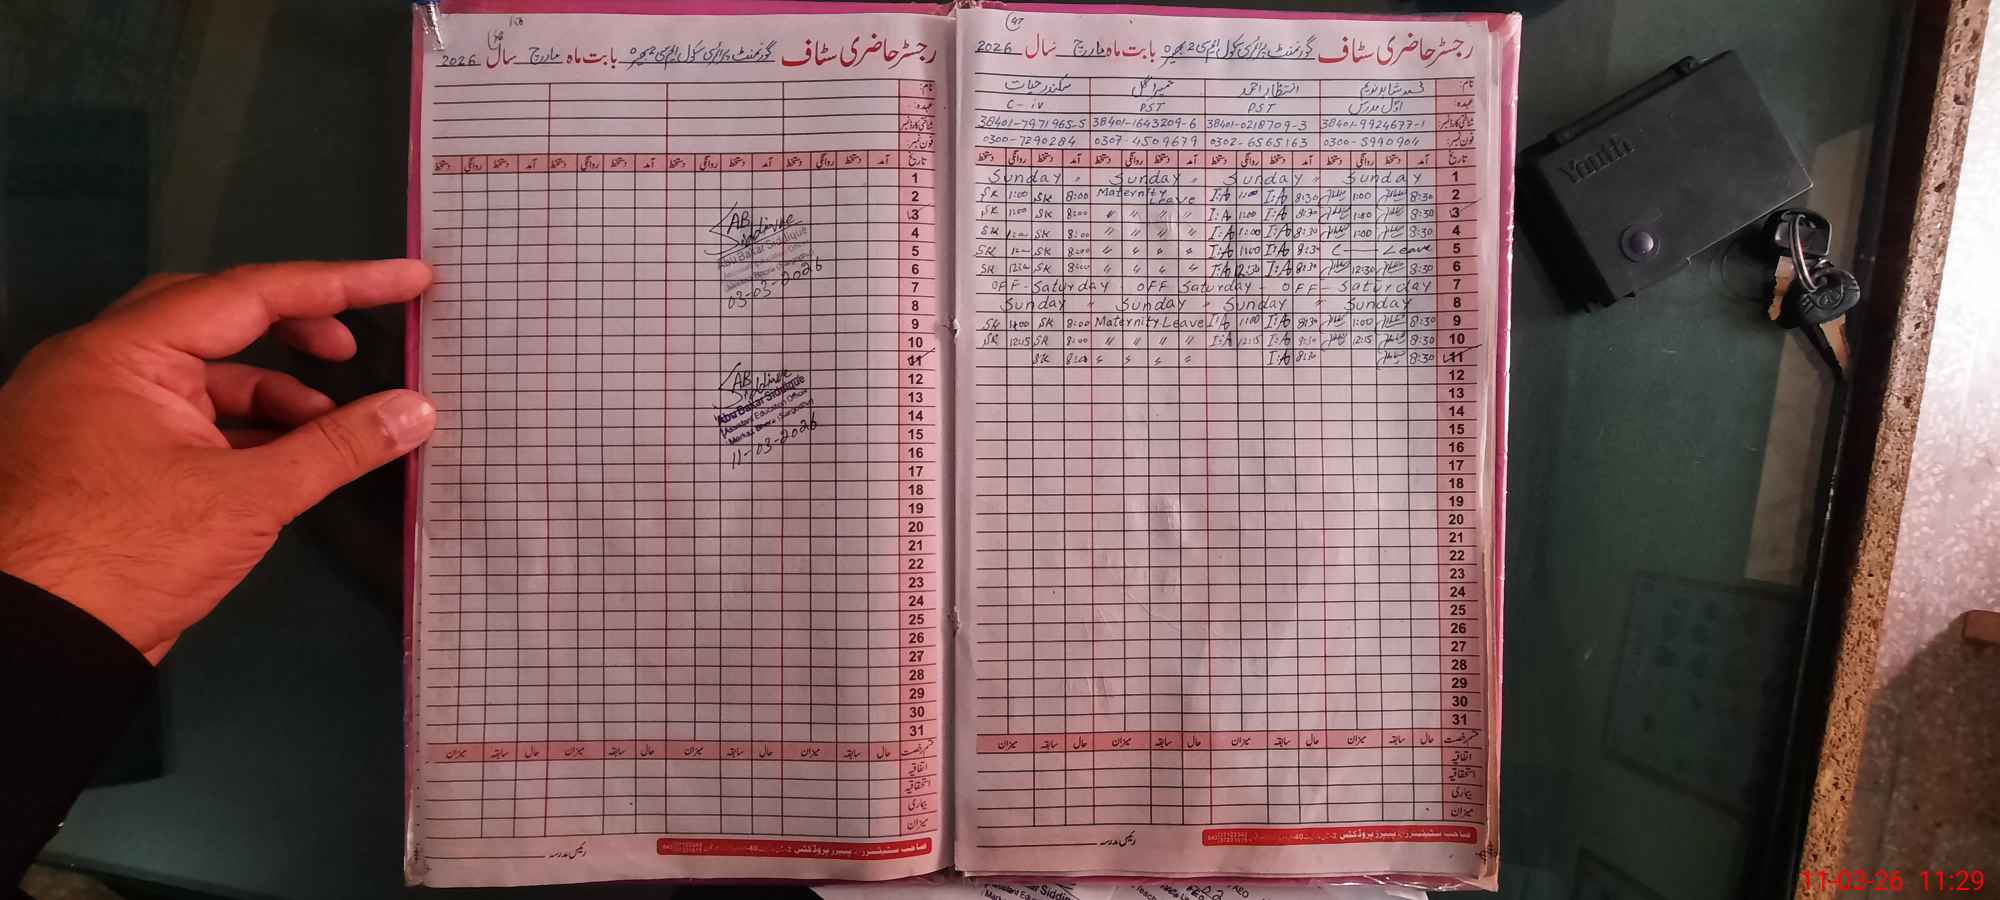 رجسٹر حاضری سٹاف گورنمنٹ پرائمری سکول ایم سی 2 بھیرہ بابت ماہ مارچ سال 2026
تاریخ آمد دستخط روانگی دستخط آمد دستخط روانگی دستخط آمد دستخط روانگی دستخط آمد دستخط روانگی دستخط
1
2
3
4
5
6
7
8
9
10
11
12
13
14
15
16
17
18
19
20
21
22
23
24
25
26
27
28
29
30
31
AB Siddique
Abu Bakar Siddique
03-03-2026
AB Siddique
Abu Bakar Siddique
(Assistant Education Officer)
Markaz Bhera (Sargodha)
11-03-2026
حال سابقہ میزان حال سابقہ میزان حال سابقہ میزان حال سابقہ میزان
اتفاقیہ
استحقاقیہ
بیماری
میزان
رئیس مدرسہ
صاحب سٹیشنرز اینڈ پیپرز پروڈکٹس
47
رجسٹر حاضری سٹاف گورنمنٹ پرائمری سکول ایم سی 2 بھیرہ بابت ماہ مارچ سال 2026
نام: انتظار احمد حمیرا گل سکندر حیات
عہدہ: اول مدرس PST PST C-iv
شناختی کارڈ نمبر: 38401-9924677-1 38401-0218709-3 38401-1643209-6 38401-7971965-5
فون نمبر: 0300-5990904 0302-6565163 0307-4509679 0300-7290284
تاریخ آمد دستخط روانگی دستخط آمد دستخط روانگی دستخط آمد دستخط روانگی دستخط آمد دستخط روانگی دستخط
Sunday " Sunday " Sunday " Sunday 1
SK 1:00 SK 8:00 Maternity Leave I:A 1:00 I:A 8:30 1:00 8:30 2
SK 1:00 SK 8:00 " " " " I:A 1:00 I:A 8:30 1:00 8:30 3
SK 1:00 SK 8:00 " " " " I:A 1:00 I:A 8:30 1:00 8:30 4
SK SK 8:00 " " " " I:A 1:00 I:A 8:30 C — Leave 5
SK 12:30 SK 8:00 " " " " I:A 12:30 I:A 8:30 12:30 8:30 6
OFF - Saturday - OFF Saturday - OFF - Saturday 7
Sunday " Sunday " Sunday " Sunday 8
SK 1:00 SK 8:00 Maternity Leave I:A 1:00 I:A 8:30 1:00 8:30 9
SK 12:15 SK 8:00 " " " " I:A 12:15 I:A 8:30 12:15 8:30 10
SK 8:00 " " " " I:A 8:30 8:30 11
12
13
14
15
16
17
18
19
20
21
22
23
24
25
26
27
28
29
30
31
حال سابقہ میزان حال سابقہ میزان حال سابقہ میزان حال سابقہ میزان
اتفاقیہ
استحقاقیہ
بیماری
میزان
رئیس مدرسہ
صاحب سٹیشنرز اینڈ پیپرز پروڈکٹس
Youth
11-03-26 11:29